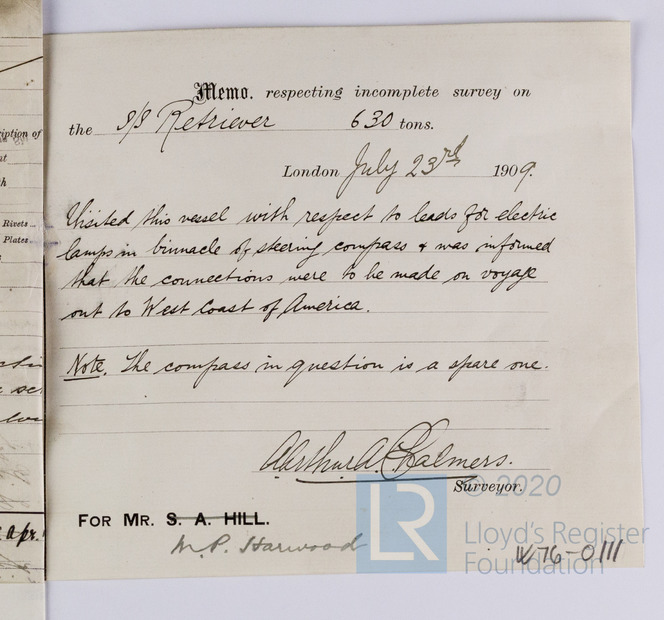 iption of
nt
th
Rivets ..
Plates ..
apr.
Memo. respecting incomplete survey on
the S/S Retriever 630 tons.
London July 23rd 1909.
Visited this vessel with respect to leads for electric
lamps in binnacle of steering compass & was informed
that the connections were to be made on voyage
out to West Coast of America.
Note. The compass in question is a spare one.
Arthur A. Chalmers.
Surveyor.
FOR MR. S. A. HILL.
M.P. Harwood
LR © 2020
Lloyd's Register
Foundation
W76-0111